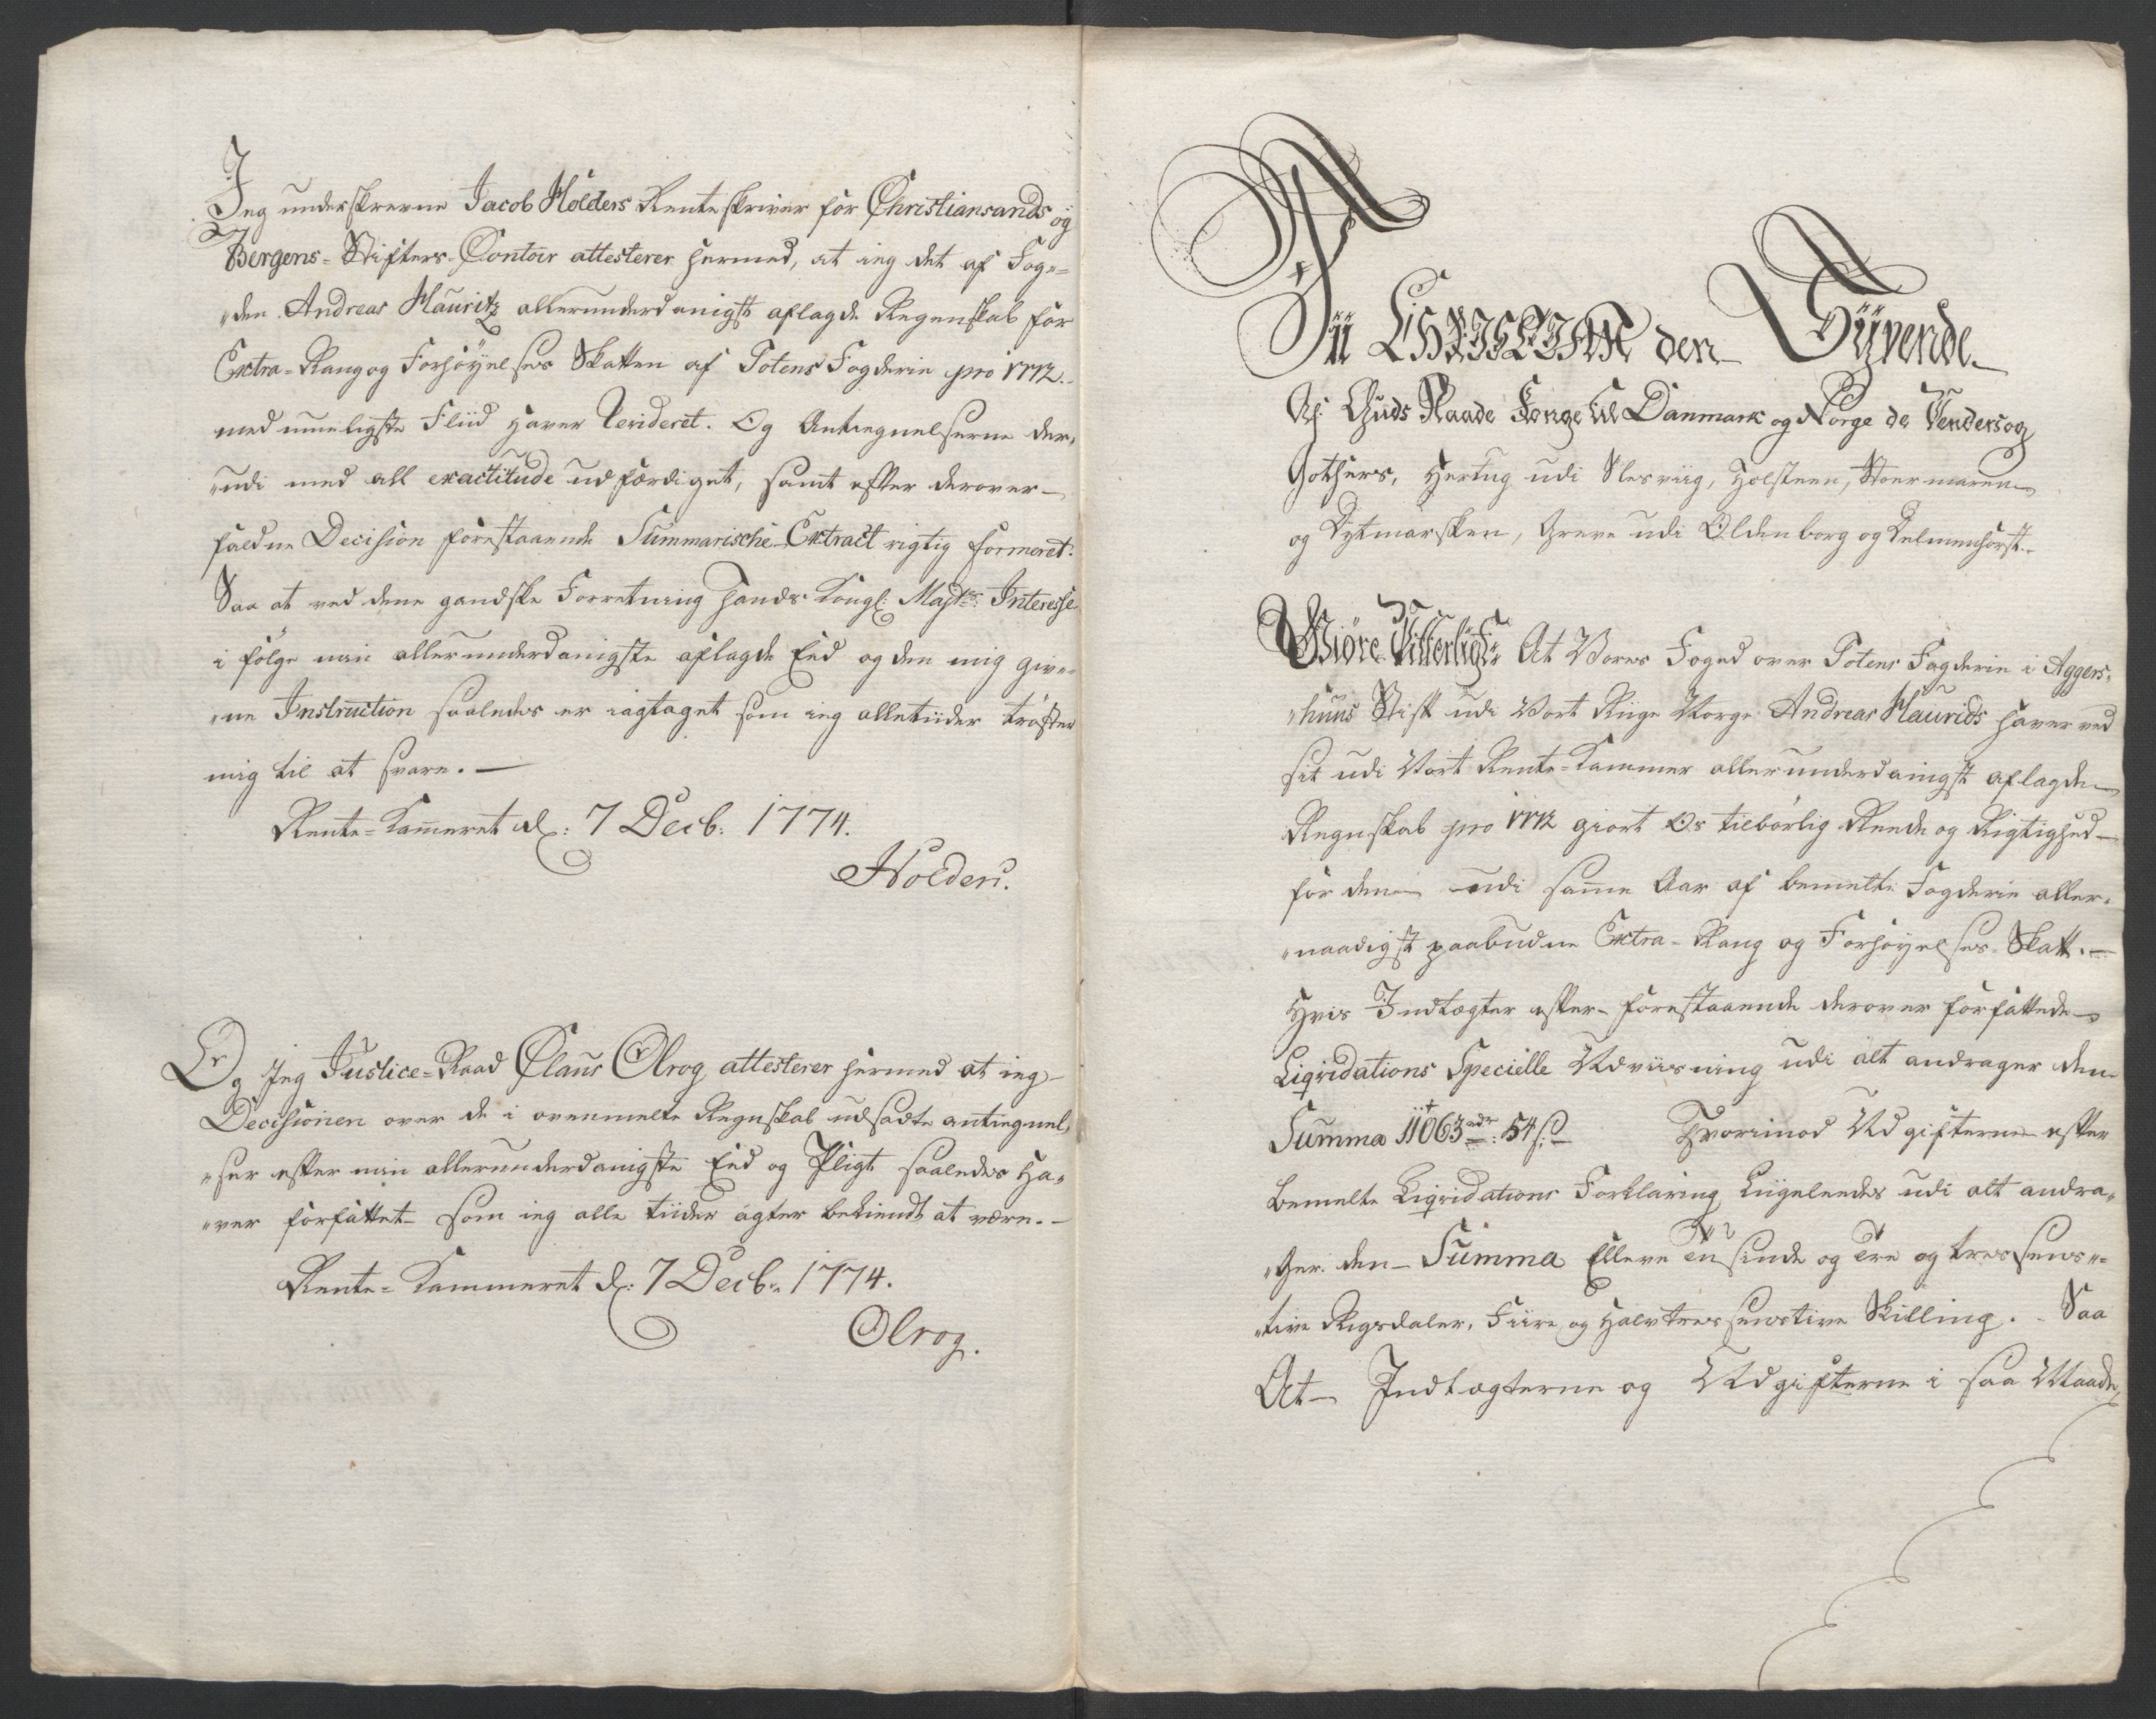 Jeg underskrevne Jacob Holders Renteskriver for Christiansands og
Bergens-Stifters-Contoir attesterer hermed, at ieg det af Foge-
"den Andreas Hauritz allerunderdanigst aflagde Regenskab for
Extra-Rang og Forhøyelses Skatten af Totens Fogderie pro 1772.
med mueligste Fliid haver Revideret. Og Antegnelserne der,
"udi med all exactitude udfærdiget, samt efter derover-
faldne Decision forestaaende Summarische-Extract rigtig formeret.
Saa at ved dene gandske Forretning Hands Kongl: Maj:ts Interesse
i følge min allerunderdanigste aflagde Eed og den mig give-
"ne Instruction saaledes er iagtaget som ieg alletiider trøster
mig til at svare.-
Rente-Kam̄eret d: 7 Decb: 1774.
Holders.
Og Jeg Justice-Raad Claus Olrog attesterer hermed at ieg-
Decisionen over de i ovenmelte Regnskab udsadte antegnel,
"ser efter min allerunderdanigste Eed og Pligt saaledes ha,
"ver forfattet- som ieg alle tiider agter bekiendt at være.-
Rente-Kammeret d: 7 Decb: 1774.
Olrog.
CHRISTIAN den Syvende
Af Guds Naade Konge til Danmark og Norge de Venders og
Gothers, Hertug udi Slesviig, Holsteen, Stoermarn
og Dytmarsken, Greve udi Oldenborg og Delmenhorst.
Giöre Vitterligt: At Vores Foged over Totens Fogderie i Aggers,
"huus Stift udi Vort Riige Norge Andreas Haurids haver ved
sit udi Vort Rente-Kammer allerunderdanigst aflagde
Regnskab pro 1772 giort Os tilbørlig Reede og Rigtighed-
for den udi sam̄e Aar af bemelte Fogderie aller,
"naadigst paabudne Extra-Rang og Forhøyelses-Skatt.-
Hvis Indtægter efter forestaaende derover forfattede
Liqvidations Specielle Udviisning udi alt andrager den
Summa 11063 rdr: 54 s. Hvorimod Udgifterne efter
bemelte Liqvidations Forklaring Liigeleedes udi alt andra,
"ger den- Summa Elleve Tusinde og Tre og tresens-
"tive Rigsdaler, Fiire og halvtresenstive Skilling. - Saa
At- Indtægterne og Udgifterne i saa Maade